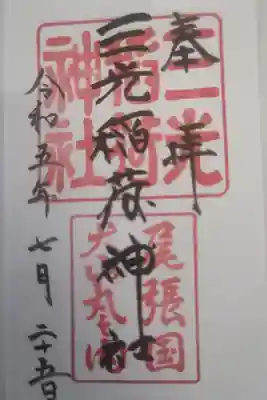 奉拝
三光稲荷神社
令和五年 七月 二十五日
三光
稲荷
神社
尾張国
犬山丸